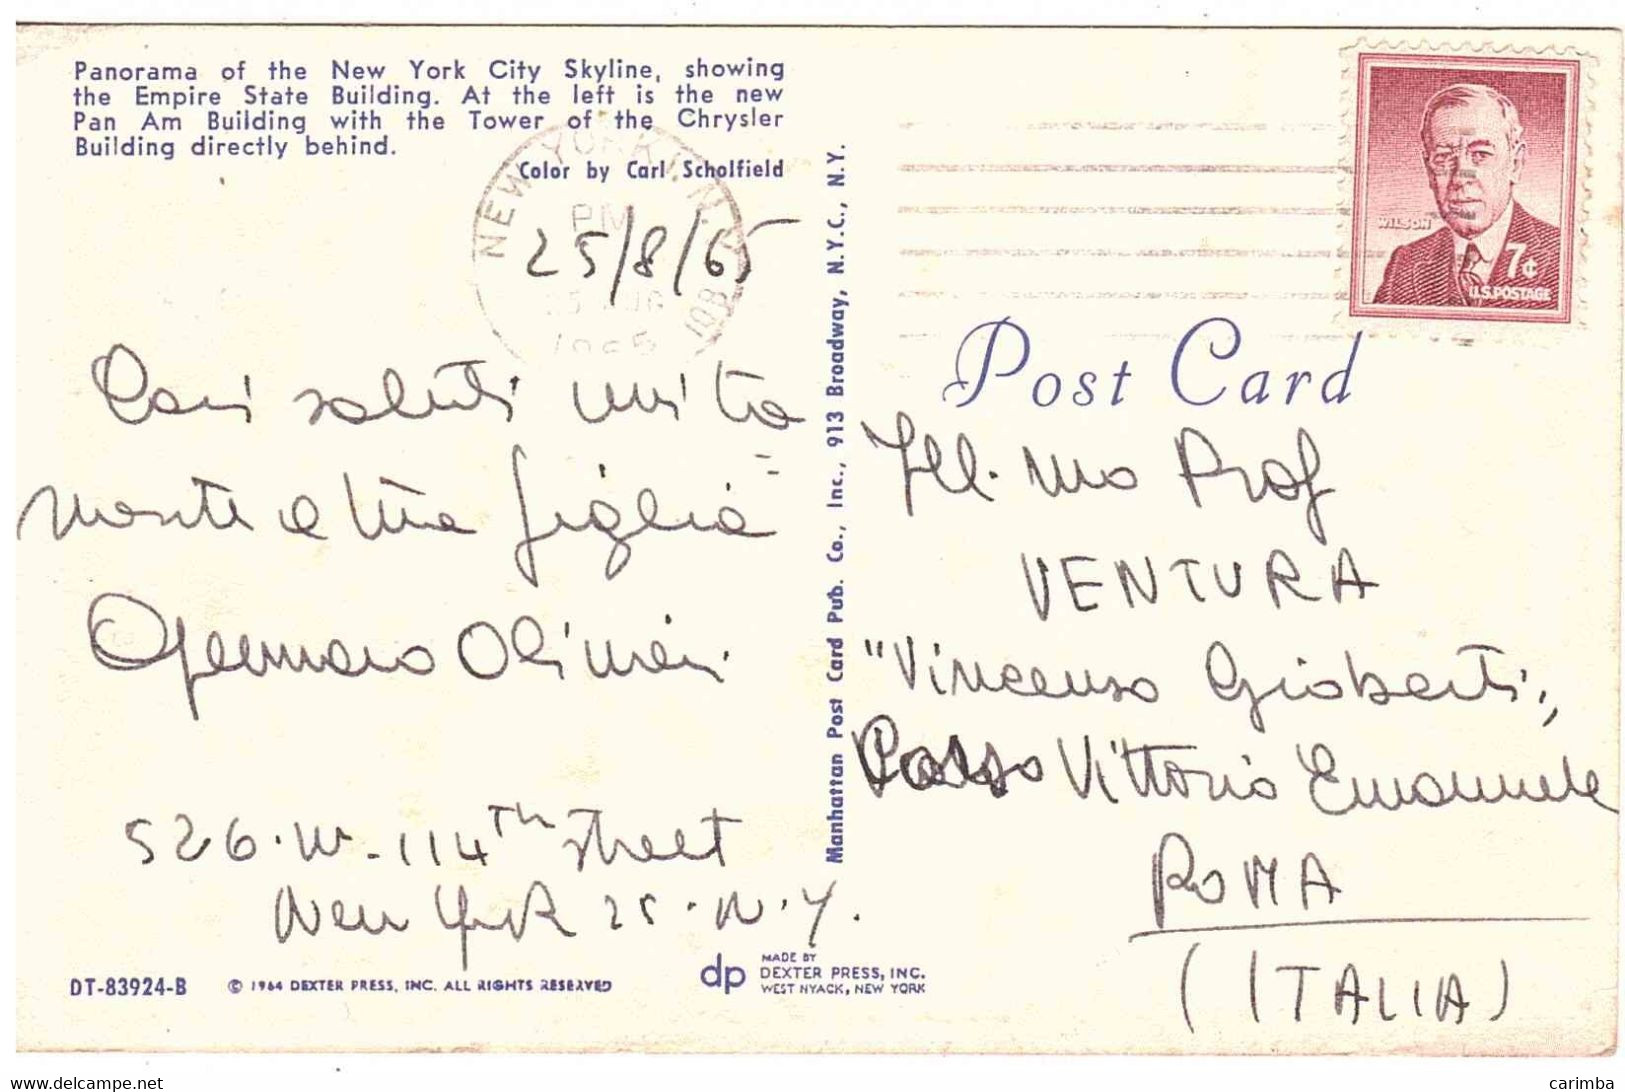 Panorama of the New York City Skyline, showing
the Empire State Building. At the left is the new
Pan Am Building with the Tower of the Chrysler
Building directly behind.
Color by Carl Scholfield
NEW YORK, N.Y.
PM
25 AUG
1965
25/8/65
Cari saluti uni ta
mente a tua figlia
Gennaro Olivieri
526. W. 114th Street
New York 25. N. Y.
DT-83924-B
© 1964 DEXTER PRESS, INC. ALL RIGHTS RESERVED
dp
MADE BY
DEXTER PRESS, INC.
WEST NYACK, NEW YORK
Manhattan Post Card Pub. Co., Inc., 913 Broadway, N.Y.C., N.Y.
WILSON
7¢
U.S. POSTAGE
Post Card
Ill.mo Prof
VENTURA
"Vincenzo Gioberti"
Corso Vittorio Emanuele
ROMA
(ITALIA)
delcampe.net
carimba